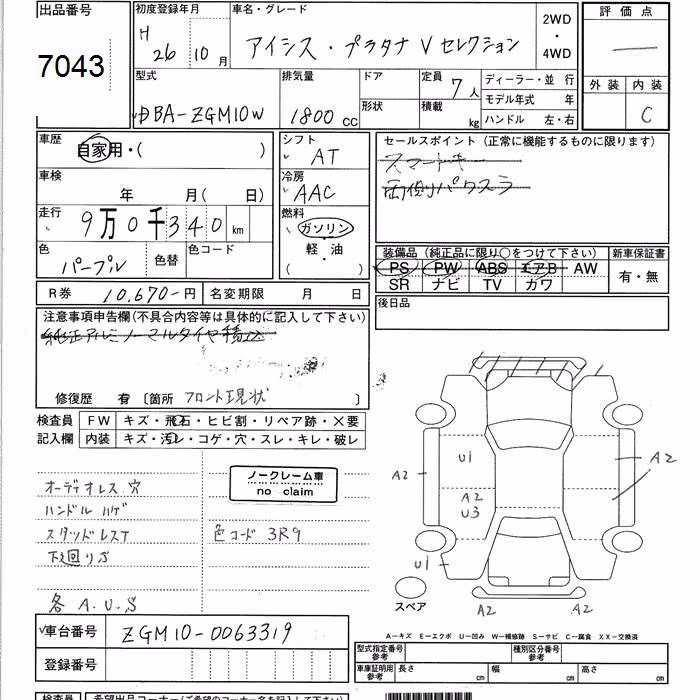 出品番号 初度登録年月 車名・グレード 2WD・4WD 評価点
7043 H 26 10月 アイシス・プラタナ V セレクション
型式 排気量 ドア 定員 7人 ディーラー・並行 外装 内装
DBA-ZGM10W 1800cc 形状 積載 kg モデル年式 年 C
ハンドル 左・右
車歴 シフト セールスポイント (正常に機能するものに限ります)
自家用・( ) AT スマートキー
車検 冷房 両側パワスラ
年 月( 日) AAC
走行 燃料
9万0千340km ガソリン
色 色替 色コード 軽・油 装備品 (純正品に限り○をつけて下さい) 新車保証書
パープル ( ) PS PW ABS エアB AW 有・無
SR ナビ TV カワ
R券 10,670-円 名変期限 月 日 後日品
注意事項申告欄(不具合内容等は具体的に記入して下さい)
純正アルミノーマルタイヤ積込
修復歴 有 〔箇所 フロント現状 〕
検査員 FW キズ・飛石・ヒビ割・リペア跡・×要
記入欄 内装 キズ・汚レ・コゲ・穴・スレ・キレ・破レ
ノークレーム車
no claim
オーディオレス 穴
ハンドル ハゲ
スタッドレスT 色コード 3R9
下廻りサ
各 A.U.S
U1 A2 A2
A2
U3
U1
スペア A2 A2
A-キズ E-エクボ U-凹み W-補修跡 S-サビ C-腐食 XX-交換済
車台番号 ZGM10-0063319
登録番号
型式指定番号 参考 種別区分番号 参考
車庫証明用 参考 長さ cm 幅 cm 高さ cm
検査員 希望出品コーナー(ご希望のコーナー名を記入して下さい)